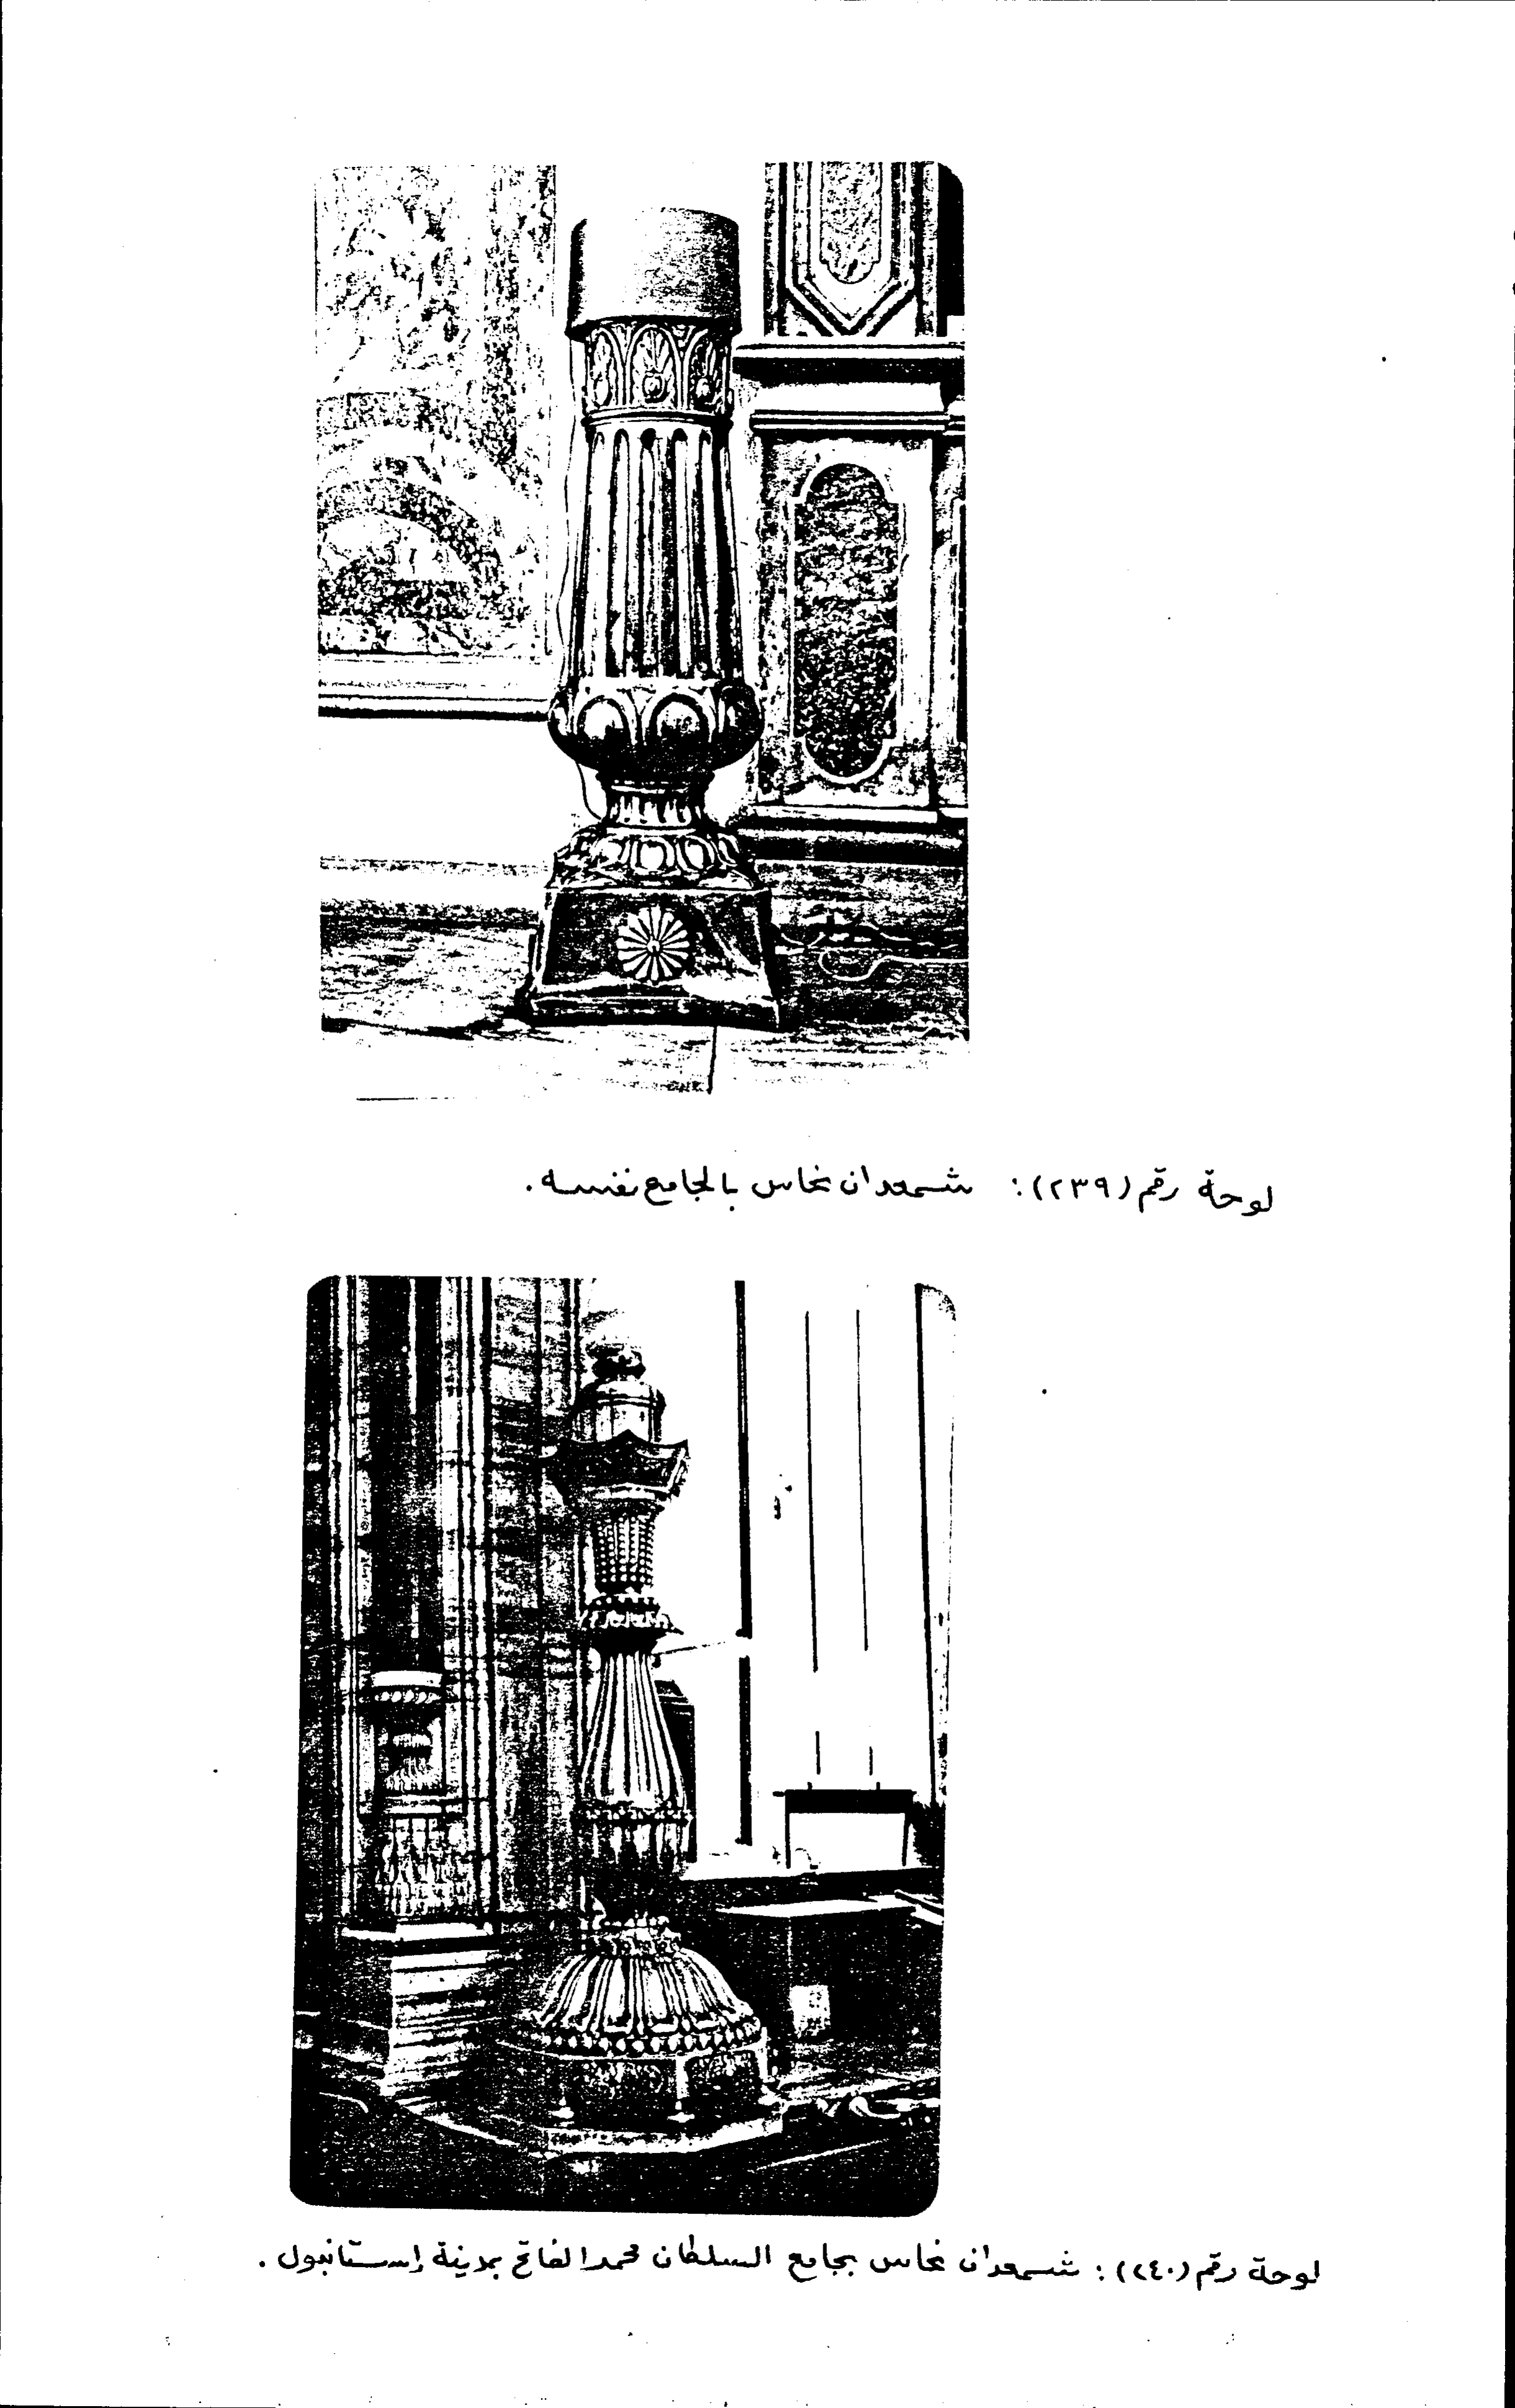 لوحة رقم (٢٣٩): شمعدان نحاس بالجامع نفسه.
لوحة رقم (٢٤٠): شمعدان نحاس بجامع السلطان محمد الفاتح بمدينة إستانبول.